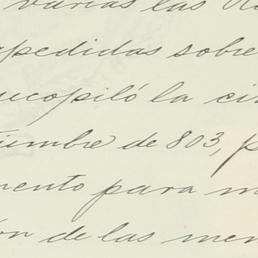 varias las
pedidas sobre
ecopiló la ci
iembre de 803, p
mento para m
ón de las men